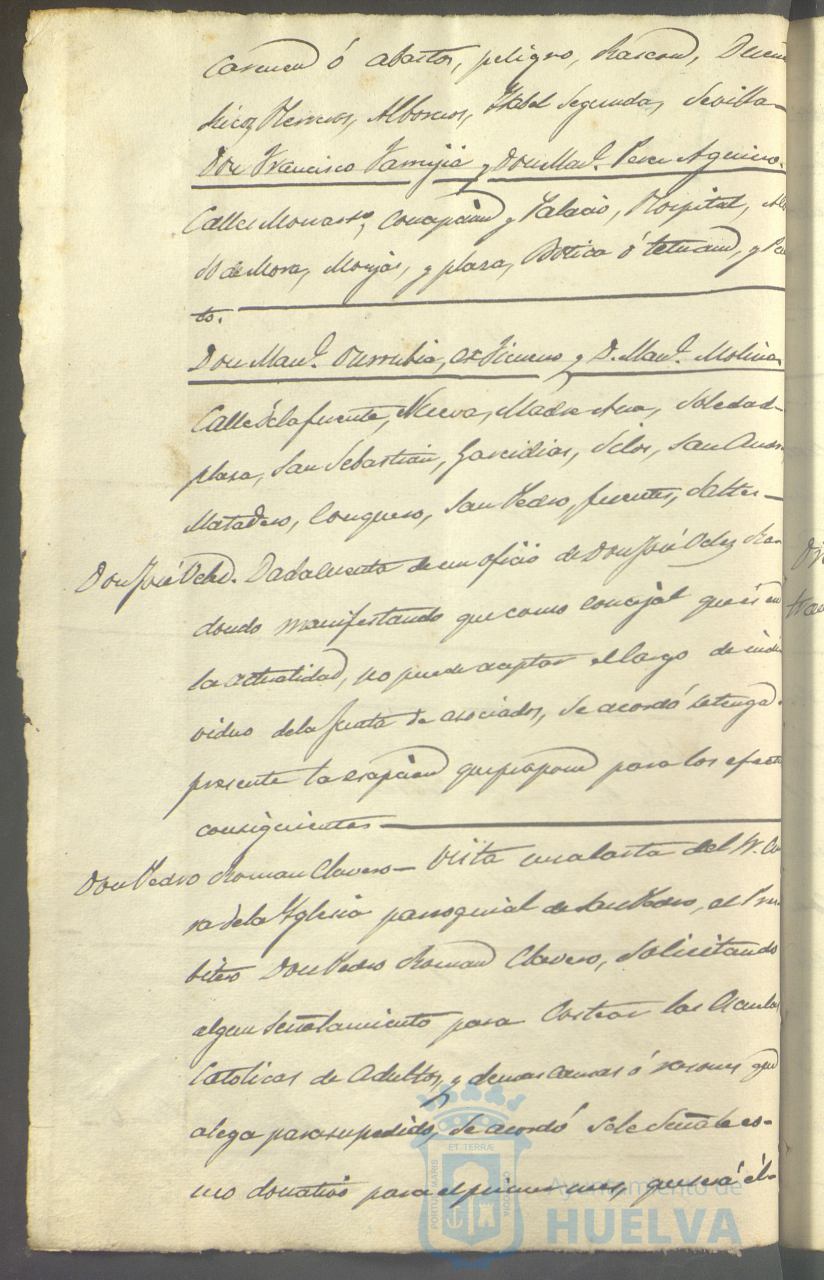 Carmen ó abastos, peligro, Rascon,
Rico, Herreros, Albornos, Isabel Segunda, Sevilla-
Don Francisco Farrujia y Don Man.l Perez Aguirre.
Calles Monasto, Concepcion y Palacio, Hospital,
de Mora, Monjas, y plaza, Botica ó tetuan, y Pu
to.
Don Man.l Ytturrubia, y D. Man.l Molina
Calle de la fuente, Nueva, Madre Ana, Soledad-
plaza, San Sebastian, Garcidias, Silos, San Andres,
Matadero, Conquero, San Pedro, fuentes, Saltes-
Don José Velez. Dada cuenta de un oficio de Don José Velez Ra-
dondo manifestando que como concejal que es en
la actualidad, no puede aceptar el cargo de indi
viduo de la Junta de asociados, se acordó se tenga
presente la escepcion que propone para los efectos
consiguientes
Don Pedro Roman Clavero- Vista una carta del Sr. Cu
ra de la Yglesia parroquial de San Pedro, el Pres
bitero Don Pedro Roman Clavero, solicitando
algun señalamiento para costear las Escuelas
Catolicas de Adultos, y demas causas ó rasones que
alega para su pedido, se acordó se le señale co-
mo donativo para el primer mes, que será él-
PORTUS MARIS ET TERRÆ CUSTODIA
Ayuntamiento de
HUELVA